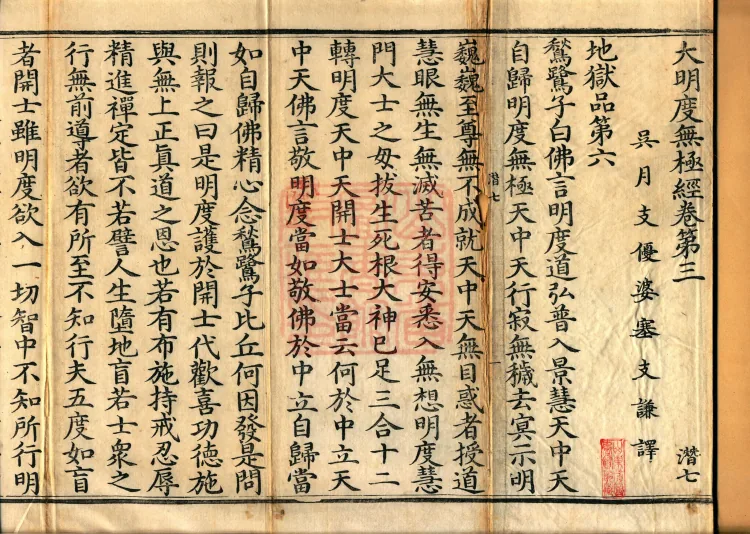 大明度無極經卷第三
潛七
吳月支優婆塞支謙譯
地獄品第六
鶖鷺子白佛言明度道弘普入景慧天中天
自歸明度無極天中天行寂無穢去冥示明
潛七
巍巍至尊無不成就天中天無目惑者授道
慧眼無生無滅苦者得安悉入無想明度慧
門大士之毋拔生死根大神已足三合十二
轉明度天中天開士大士當云何於中立天
中天佛言敬明度當如敬佛於中立自歸當
如自歸佛精心念鶖鷺子比丘何因發是問
則報之曰是明度護於開士代歡喜功德施
與無上正真道之恩也若有布施持戒忍辱
精進禪定皆不若譬人生墮地盲若士衆之
行無前導者欲有所至不知行夫五度如盲
者開士雖明度欲入一切智中不知所行明